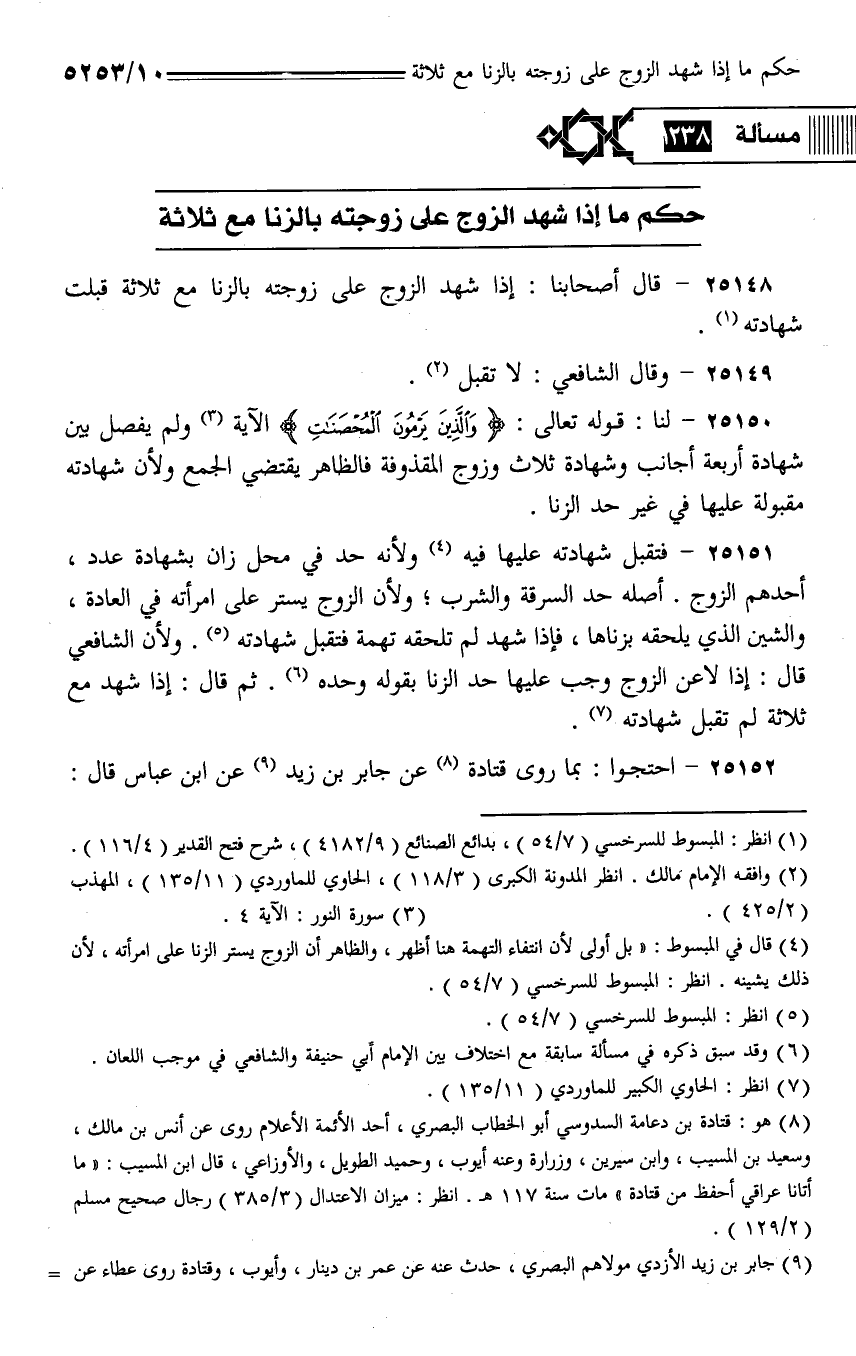 حكم ما إذا شهد الزوج على زوجته بالزنا مع ثلاثة ٥٢٥٣/١٠
مسألة ١٢٣٨
حكم ما إذا شهد الزوج على زوجته بالزنا مع ثلاثة
٢٥١٤٨ - قال أصحابنا : إذا شهد الزوج على زوجته بالزنا مع ثلاثة قبلت
شهادته (١) .
٢٥١٤٩ - وقال الشافعي : لا تقبل (٢) .
٢٥١٥٠ - لنا : قوله تعالى : ﴿ وَٱلَّذِينَ يَرْمُونَ ٱلْمُحْصَنَٰتِ ﴾ الآية (٣) ولم يفصل بين
شهادة أربعة أجانب وشهادة ثلاث وزوج المقذوفة فالظاهر يقتضي الجمع ولأن شهادته
مقبولة عليها في غير حد الزنا .
٢٥١٥١ - فتقبل شهادته عليها فيه (٤) ولأنه حد في محل زان بشهادة عدد ،
أحدهم الزوج . أصله حد السرقة والشرب ؛ ولأن الزوج يستر على امرأته في العادة ،
والشين الذي يلحقه بزناها ، فإذا شهد لم تلحقه تهمة فتقبل شهادته (٥) . ولأن الشافعي
قال : إذا لاعن الزوج وجب عليها حد الزنا بقوله وحده (٦) . ثم قال : إذا شهد مع
ثلاثة لم تقبل شهادته (٧) .
٢٥١٥٢ - احتجوا : بما روى قتادة (٨) عن جابر بن زيد (٩) عن ابن عباس قال :
(١) انظر : المبسوط للسرخسي ( ٥٤/٧ ) ، بدائع الصنائع ( ٤١٨٢/٩ ) ، شرح فتح القدير ( ١١٦/٤ ) .
(٢) وافقه الإمام مالك . انظر المدونة الكبرى ( ١١٨/٣ ) ، الحاوي للماوردي ( ١٣٥/١١ ) ، المهذب
( ٤٢٥/٢ ) . (٣) سورة النور : الآية ٤ .
(٤) قال في المبسوط : « بل أولى لأن انتفاء التهمة هنا أظهر ، والظاهر أن الزوج يستر الزنا على امرأته ، لأن
ذلك يشينه . انظر : المبسوط للسرخسي ( ٥٤/٧ ) .
(٥) انظر : المبسوط للسرخسي ( ٥٤/٧ ) .
(٦) وقد سبق ذكره في مسألة سابقة مع اختلاف بين الإمام أبي حنيفة والشافعي في موجب اللعان .
(٧) انظر : الحاوي الكبير للماوردي ( ١٣٥/١١ ) .
(٨) هو : قتادة بن دعامة السدوسي أبو الخطاب البصري ، أحد الأئمة الأعلام روى عن أنس بن مالك ،
وسعيد بن المسيب ، وابن سيرين ، وزرارة وعنه أيوب ، وحميد الطويل ، والأوزاعي ، قال ابن المسيب : « ما
أتانا عراقي أحفظ من قتادة » مات سنة ١١٧ هـ . انظر : ميزان الاعتدال ( ٣٨٥/٣ ) رجال صحيح مسلم
( ١٢٩/٢ ) .
(٩) جابر بن زيد الأزدي مولاهم البصري ، حدث عنه عن عمر بن دينار ، وأيوب ، وقتادة روى عطاء عن =